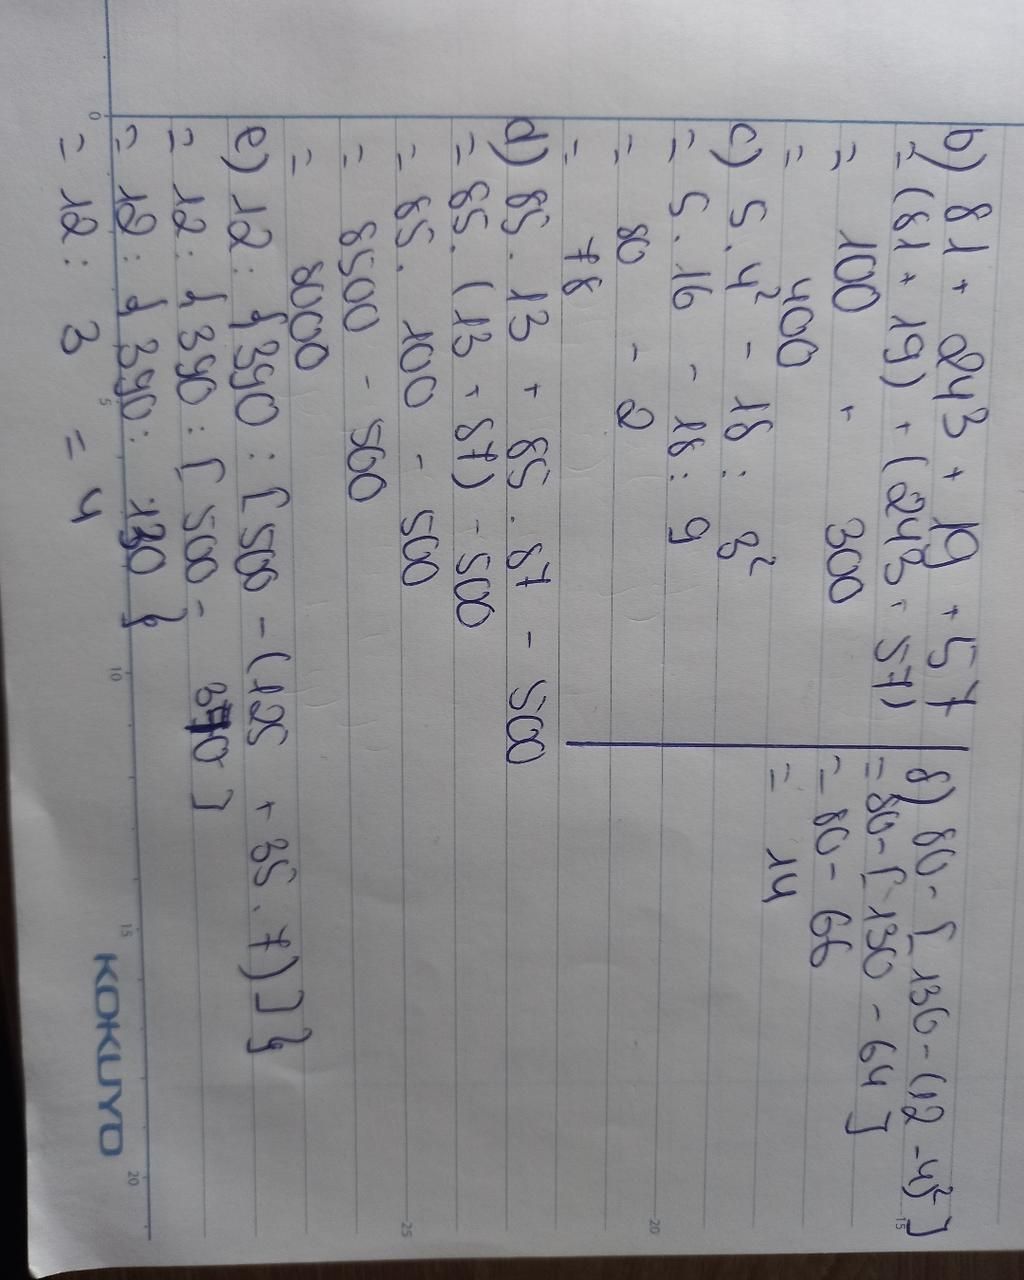 b) 81 + 243 + 19 + 57
= (81 + 19) + (243 + 57)
= 100 + 300
= 400
c) 5 . 4² - 18 : 3²
= 5 . 16 - 18 : 9
= 80 - 2
= 78
f) 80 - [130 - (12 - 4)²]
= 80 - [130 - 64]
= 80 - 66
= 14
d) 85 . 13 + 85 . 87 - 500
= 85 . (13 + 87) - 500
= 85 . 100 - 500
= 8500 - 500
= 8000
e) 12 : {390 : [500 - (125 + 35 . 7)]}
= 12 : {390 : [500 - 370]
= 12 : {390 : 130}
= 12 : 3 = 4
0
5
10
15
20
15
20
25
KOKUYO